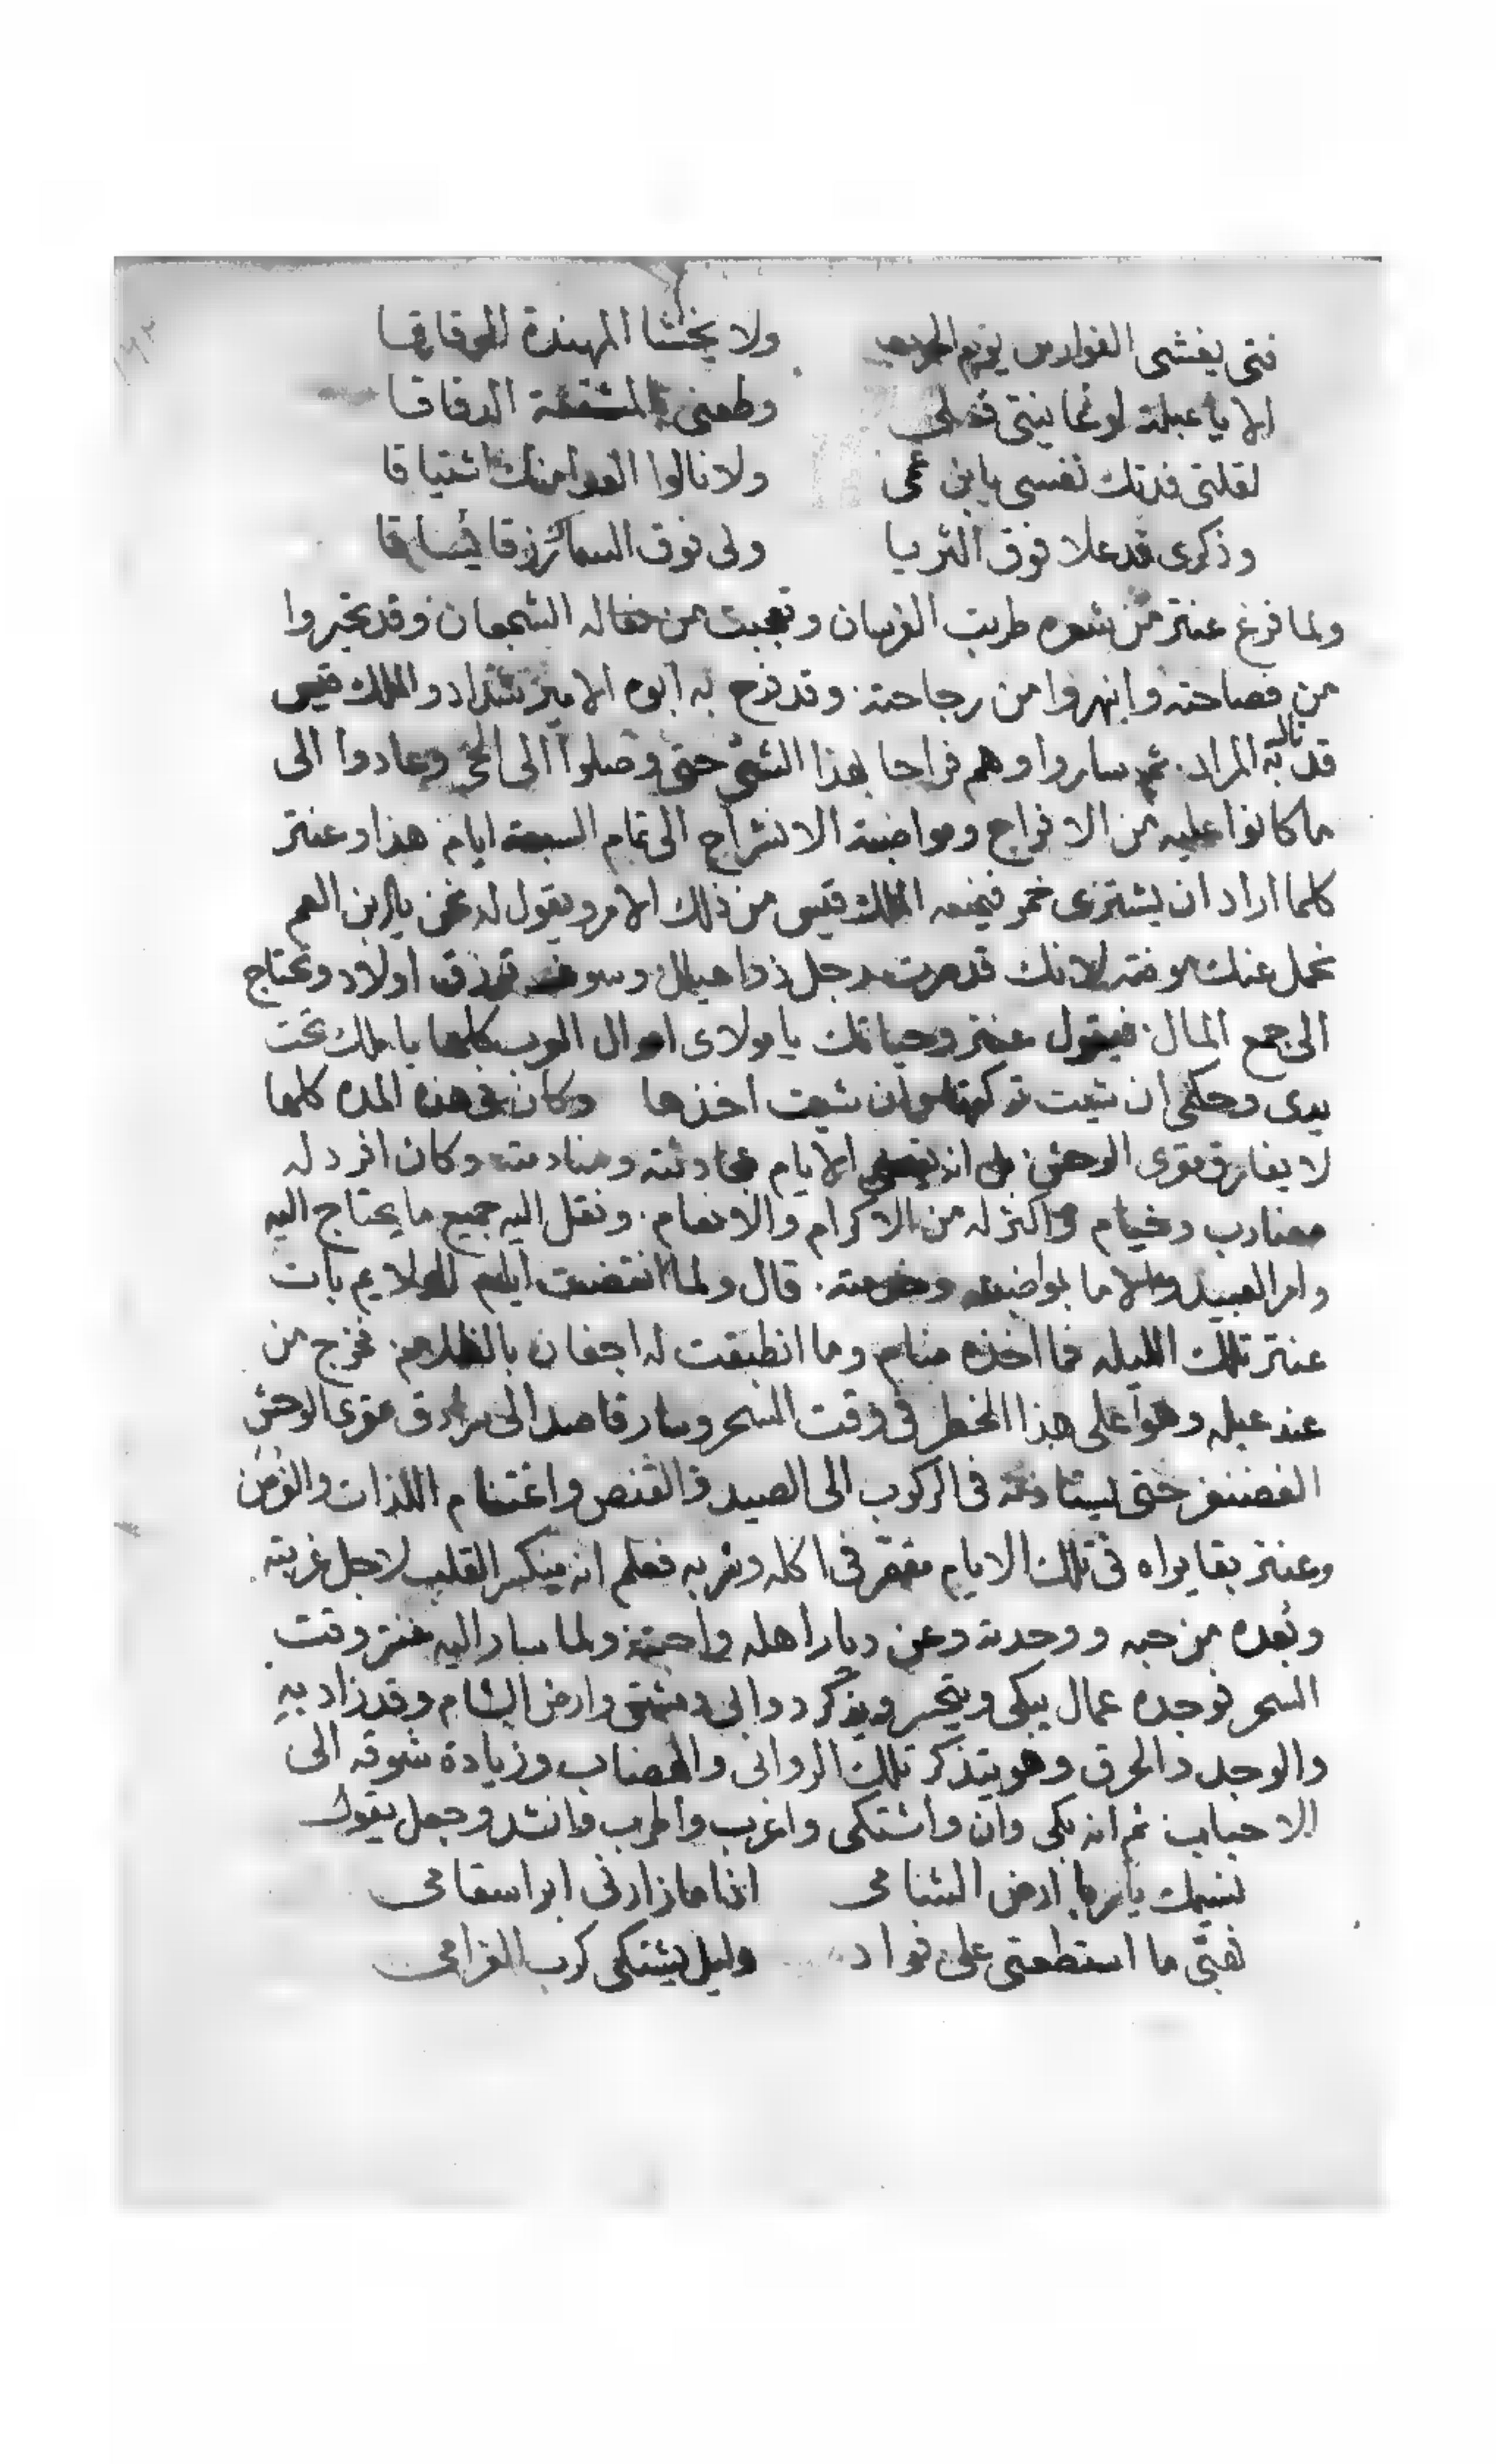 فتى يغشى الفوارس يوم الحرب ولا يخشا المهندة الرقاقا
الا يا عبلة لو عاينتى فعلى وطعنى بالمثقفة الدقاقا
لقلتى فدتك نفسى يابن عمى ولا نالوا العدا منك اشتياقا
وذكرى قد علا فوق الثريا ولى فوق السما رزقا يساقا
ولما فرغ عنتر من شعره طربت الفرسان وتعجبت من مقاله الشجعان وقد تحيروا
من فصاحته وانبهروا من رجاحته وقد فرح به ابوه الامير شداد والملك قيس
قد ناله به المراد. ثم ساروا وهم فراحا بهذا الشى حتى وصلوا الى الحى وعادوا الى
ما كانوا عليه من الافراح ومواضبة الانشراح الى تمام السبعة ايام هذا وعنتر
كلما اراد ان يشترى خمر فيمنعه الملك قيس من ذلك الامر ويقول له نحن يا بن العم
نحمل عنك مونته لانك قد صرت رجل ذوا عيال وسوف ترزق اولاد وتحتاج
الى جمع المال. فيقول عنتر وحياتك يا مولاى اموال العرب كلها يا ملك تحت
يدى وحكمى ان شيت تركتها وان شيت اخذها وكان فى هذه المده كلها
لا يفارق مقرى الوحش بل انه يقضى الايام بمحادثته ومنادمته وكان افرد له
مضارب وخيام واكثر له من الاكرام والانعام. ونقل اليه جميع ما يحتاج اليه
وامر العبيد والاما بمواضبته وخدمته. قال ولما انقضت ايام الولايم بات
عنتر تلك الليله فما اخذه منام وما انطبقت له اجفان بالظلام فخرج من
عند عبله وهوا على هذا الخطر فى وقت السحر وسار قاصدا الى سرادق مقرى الوحش
الغضنفر حتى يستاذنه فى الركوب الى الصيد والقنص واغتنام اللذات والفرص
وعنتر بقا يراه فى تلك الايام مقصر فى اكله وشربه فعلم انه منكسر القلب لاجل غربته
وبعده من حبه ووحدته وعن ديار اهله واحبته ولما سار اليه عنتر وقت
السحر فوجده عمال يبكى ويتحسر ويذكر دوابى دمشق وارض الشام وقد زاد به
والوجد والحرق وهو يتذكر تلك الروابى والهضاب وزيادة شوقه الى
الاحباب ثم انه بكى وان واشتكى واعرب واطرب وانشد وجعل يقول
نسيمك يا ربا ارض الشامى اذا ما زارنى ابرا سقامى
فهبى ما استطعتى على فواد وليل يشتكى كرب الغرامى